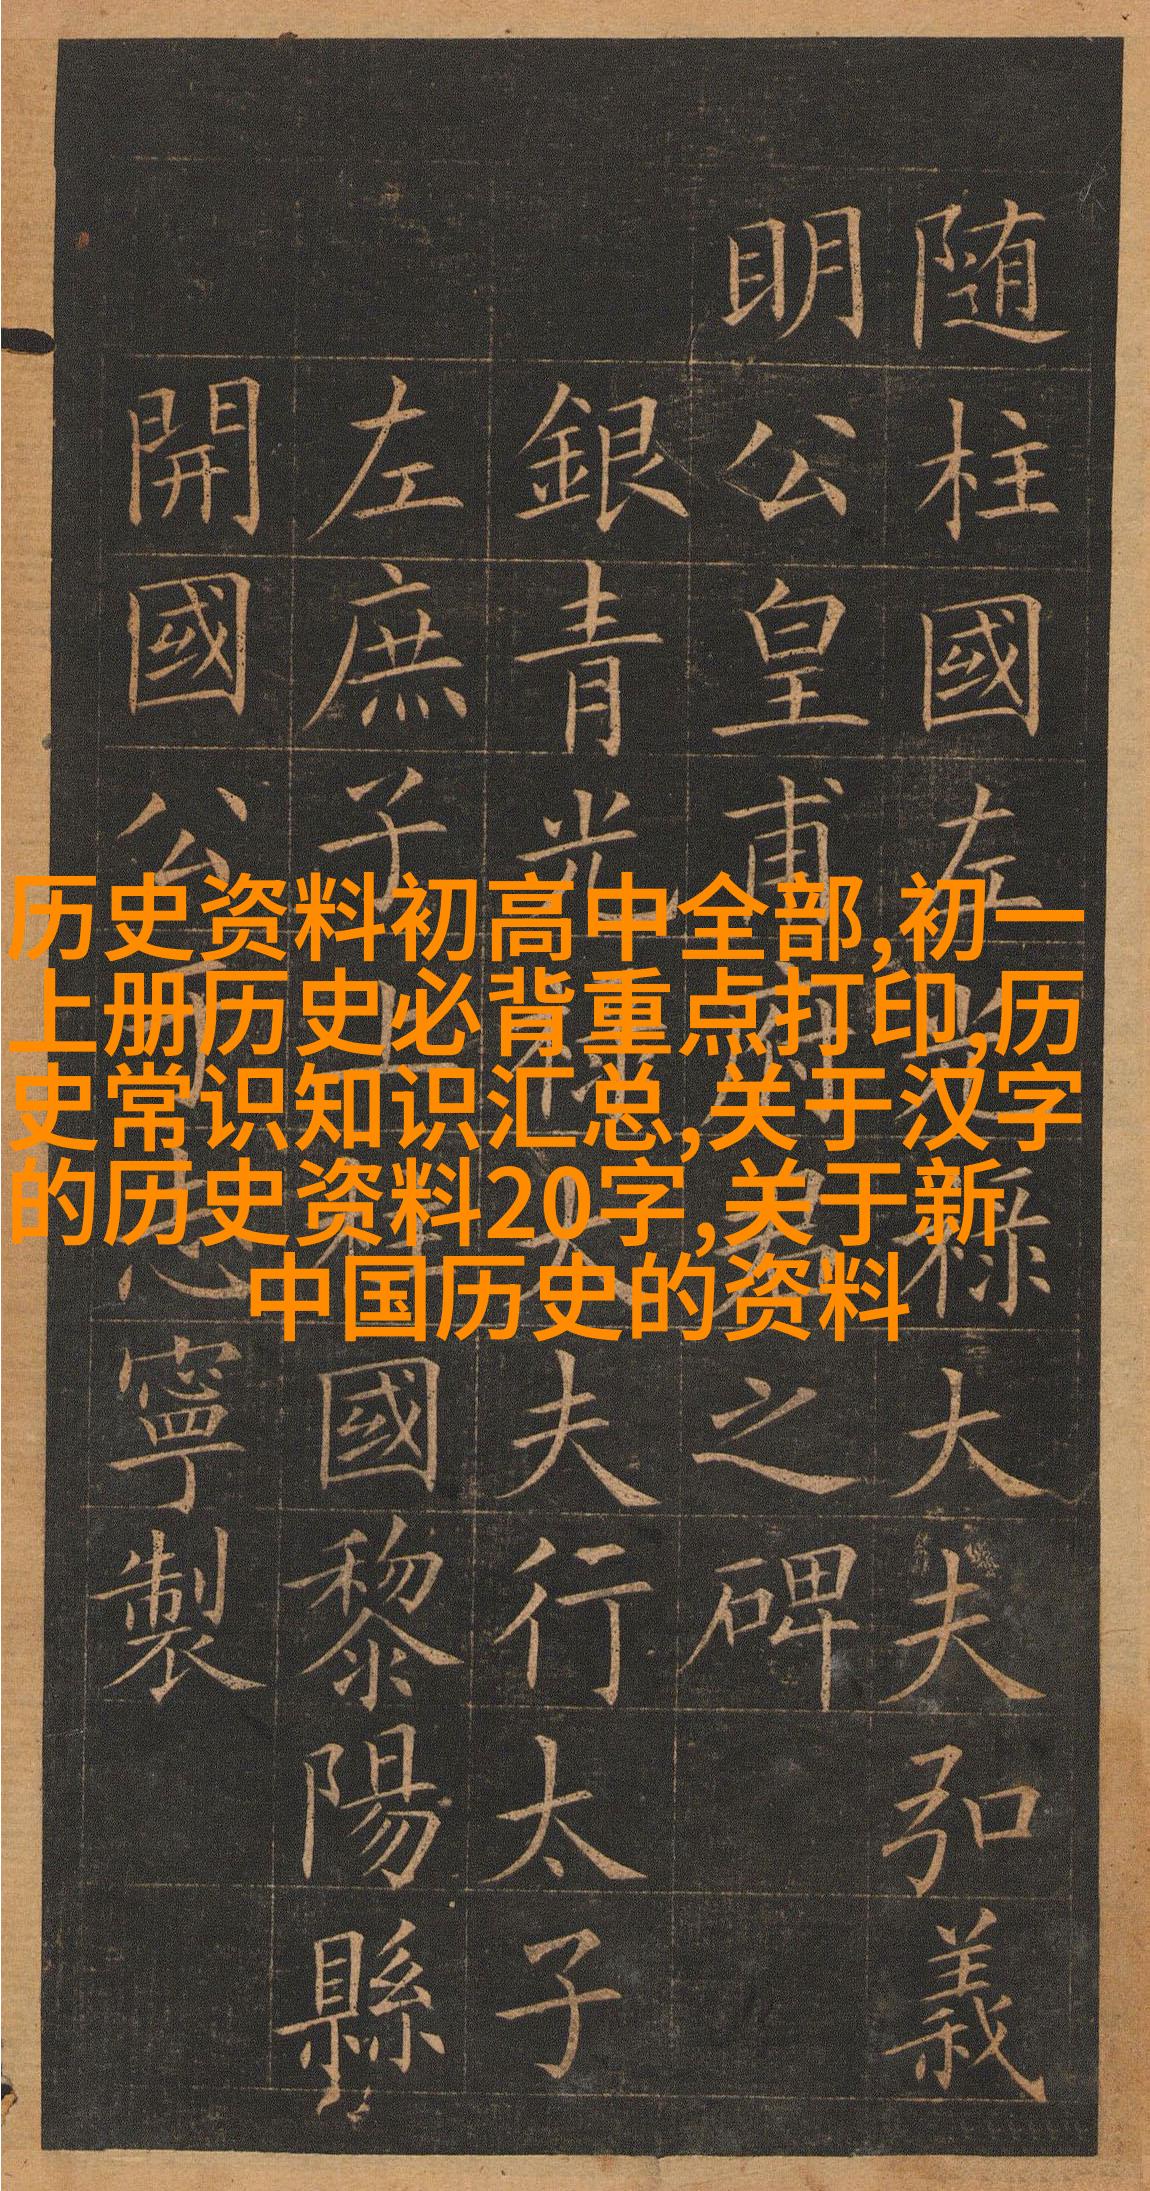 随柱國左光禄大夫弘義
明公皇甫府君之碑
銀青光禄大夫行太子
左庶子上柱國黎陽縣
開國公于志寧製
历史资料初高中全部,初一
上册历史必背重点打印,历
史常识知识汇总,关于汉字
的历史资料20字,关于新
中国历史的资料